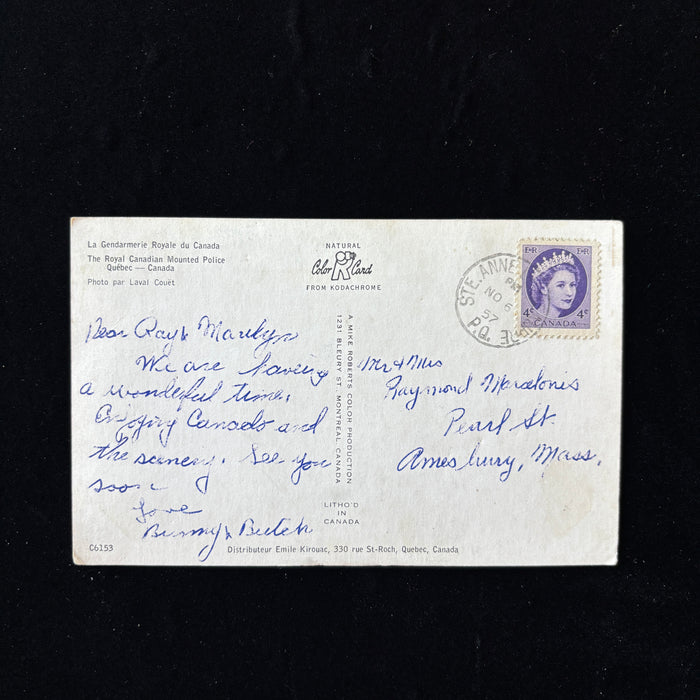 La Gendarmerie Royale du Canada
The Royal Canadian Mounted Police
Québec — Canada
Photo par Laval Couët
NATURAL
Color Card
FROM KODACHROME
STE. ANNE
PM
NO 6
57
P.Q.
E R E R
4c 4c
CANADA
Dear Ray & Marilyn
We are having
a wonderful time.
Enjoying Canada and
the scenery. See you
soon
Love
Bunny & Butch
A MIKE ROBERTS COLOR PRODUCTION
1231 BLEURY ST. MONTREAL CANADA
Mr & Mrs
Raymond
Pearl St.
Amesbury, Mass.
LITHO'D
IN
CANADA
C6153
Distributeur Emile Kirouac, 330 rue St-Roch, Quebec, Canada